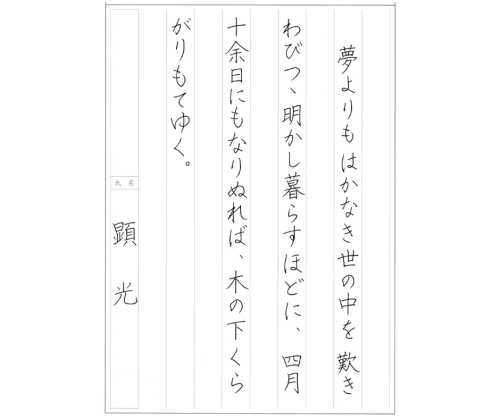 夢よりもはかなき世の中を歎き
わびつゝ明かし暮らすほどに、四月
十余日にもなりぬれば、木の下くら
がりもてゆく。
氏名
顕光